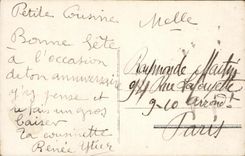 Petite Cousine
Bonne fête
à l'occasion
de ton anniversaire
j'y pense et
te fais un gros
baiser
ta cousinette
Renée
Melle
Raymonde Martin
94 Rue Lafayette
9-10 arrondt
Paris